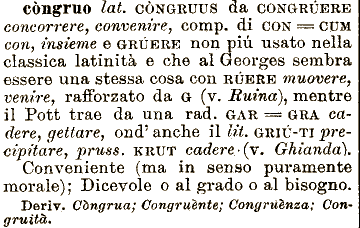 còngruo lat. CÒNGRUUS da CONGRÚERE
concorrere, convenire, comp. di CON = CUM
con, insieme e GRÚERE non piú usato nella
classica latinità e che al Georges sembra
essere una stessa cosa con RÚERE muovere,
venire, rafforzato da G (v. Ruina), mentre
il Pott trae da una rad. GAR = GRA ca-
dere, gettare, ond' anche il lit. GRIÚ-TI pre-
cipitare, pruss. KRUT cadere (v. Ghianda).
Conveniente (ma in senso puramente
morale); Dicevole o al grado o al bisogno.
Deriv. Còngrua; Congruènte; Congruènza; Con-
gruità.